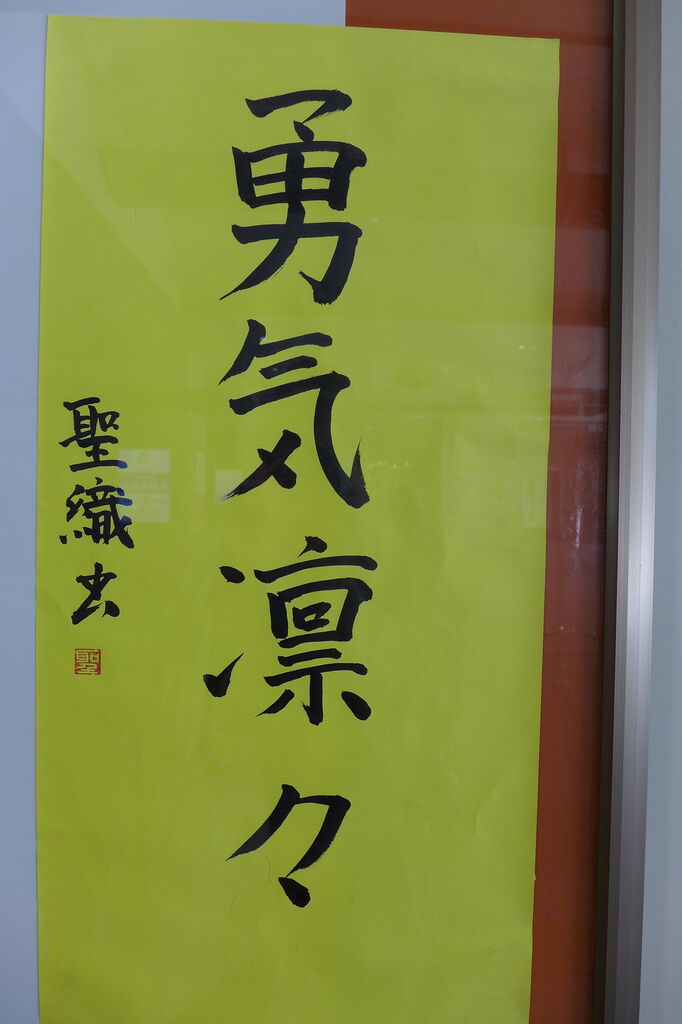 勇気凛々
聖織書
聖